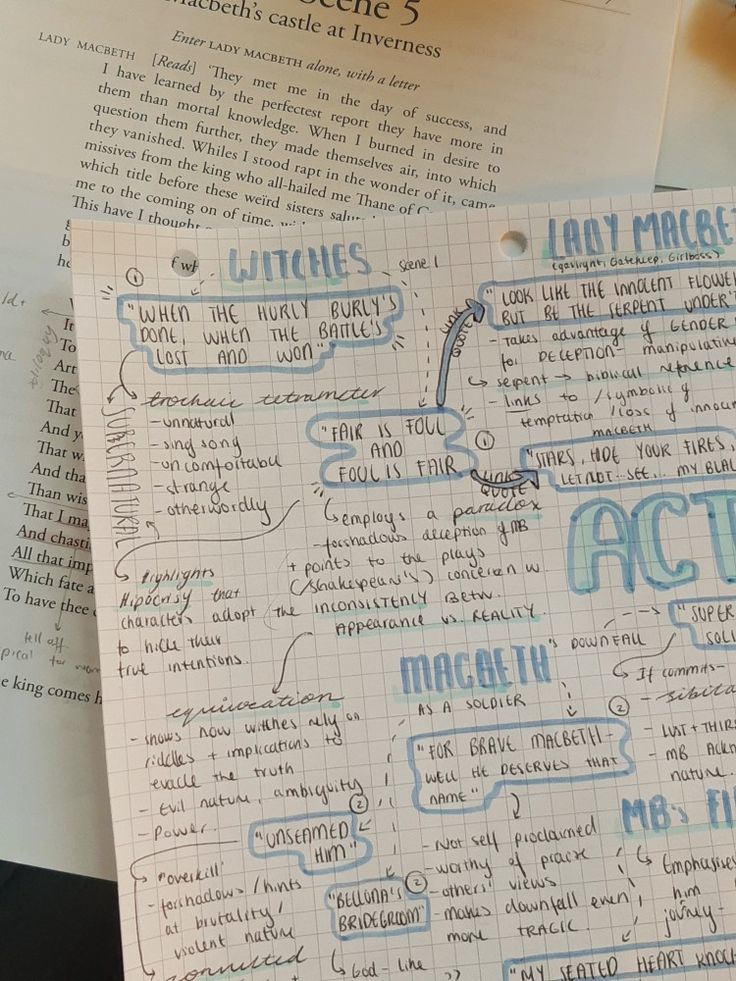 Scene 5
Macbeth's castle at Inverness
Enter LADY MACBETH alone, with a letter
LADY MACBETH [Reads] 'They met me in the day of success, and
I have learned by the perfectest report they have more in
them than mortal knowledge. When I burned in desire to
question them further, they made themselves air, into which
they vanished. Whiles I stood rapt in the wonder of it, came
missives from the king who all-hailed me Thane of C
which title before these weird sisters salu
me to the coming on of time,
This have I thought
It
To
Art
The
That
And y
That w
And tha
Than wis
That I ma
And chasti
All that imp
Which fate a
To have thee
tell off
e king comes h
WITCHES
scene 1
①
"WHEN THE HURLY BURLY'S
DONE, WHEN THE BATTLE'S
LOST AND WON"
SUPERNATURAL
trochaic tetrameter
-unnatural
-sing song
-uncomfortable
-strange
-otherwordly
highlights
Hipocrisy that
characters adopt
to hide their
true intentions.
"FAIR IS FOUL
AND
FOUL IS FAIR
①
LINK
QUOTE
LINK
QUOTE
employs a paradox
-forshadows deception of MB
+ points to the plays
(Shakespeare's) concern w.
the INCONSISTENCY BETW.
Appearance vs. REALITY.
equivocation
- shows how witches rely on
riddles + implications to
evade the truth
- Evil nature, ambiguity
- Power.
LADY MACBE
(gaslight, Gatekeep, Girlboss)
"LOOK LIKE THE INNOCENT FLOWER
BUT BE THE SERPENT UNDER'T
- Takes advantage of GENDER
for DECEPTION- manipulative
serpent → biblical reference
- links to / symbolic of
temptation / loss of innoc
MACBETH
"STARS, HIDE YOUR FIRES,
LET NOT...SEE... MY BLA
ACT
MACBETH'S DOWNFALL
AS A SOLDIER
"SUPER
SOLI
If commits-
②
- LUST + THIRS
- MB Ackn
nature.
②
"FOR BRAVE MACBETH-
WELL HE DESERVES THAT
NAME"
- Not self proclaimed
-worthy of praise
-others' views
- makes downfall even
more TRAGIC.
②
"UNSEAMED
HIM"
'overkill'
- forshadows / hints
at brutality /
violent nature
connected
②
"BELLONA'S
BRIDEGROOM"
God-like
MB's FI
Emphasises
him
journey-
"MY SEATED HEART KNOCK